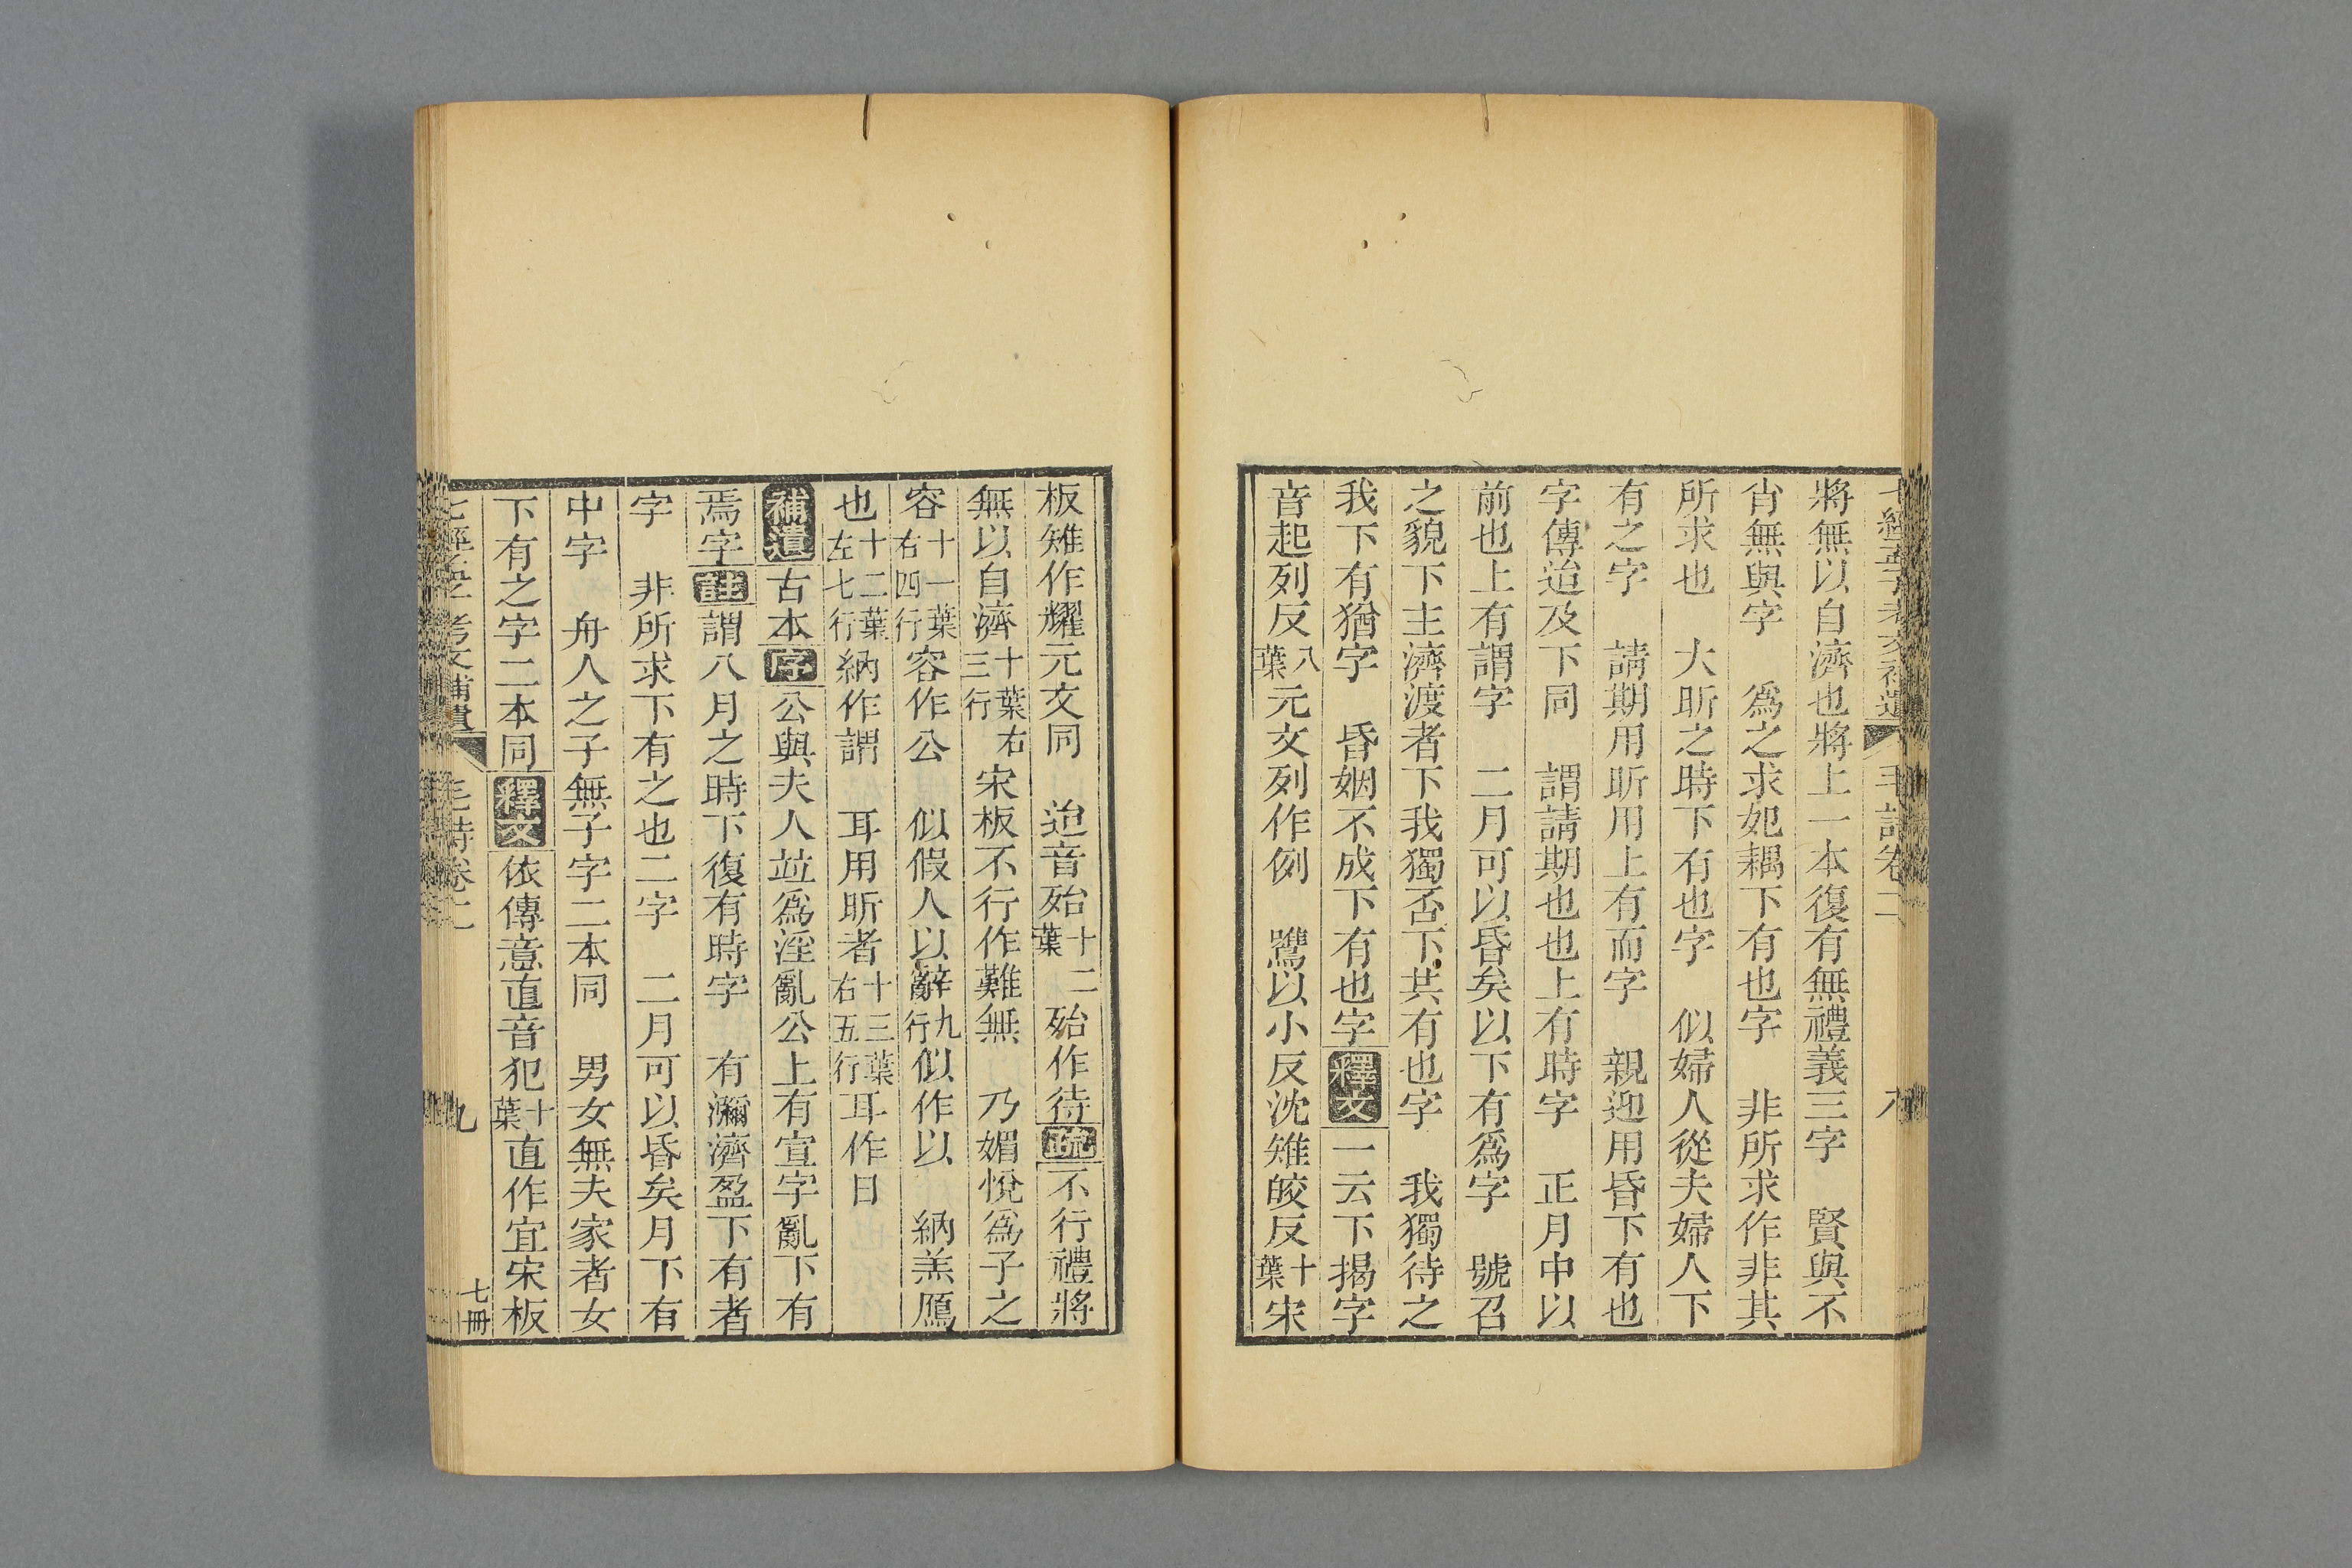 七經孟子考文補遺 毛詩卷二 八
將無以自濟也將上一本復有無禮義三字 賢與不
肯無與字 爲之求妃耦下有也字 非所求作非其
所求也 大昕之時下有也字 似婦人從夫婦人下
有之字 請期用昕用上有而字 親迎用昏下有也
字傳迨及下同 謂請期也也上有時字 正月中以
前也上有謂字 二月可以昏矣以下有爲字 號召
之貌下主濟渡者下我獨否下共有也字 我獨待之
我下有猶字 昏姻不成下有也字釋文一云下揭字
音起列反八葉元文列作例 鷕以小反沈雉皎反十葉宋
板雉作耀元文同 迨音殆十二葉殆作待疏不行禮將
無以自濟十葉右三行宋板不行作難無 乃媚悅爲子之
容十一葉右四行容作公 似假人以辭九行似作以 納羔鴈
也十二葉左七行納作謂 耳用昕者十三葉右五行耳作日
補遺古本序公與夫人竝爲淫亂公上有宣字亂下有
焉字註謂八月之時下復有時字 有瀰濟盈下有者
字 非所求下有之也二字 二月可以昏矣月下有
中字 舟人之子無子字二本同 男女無夫家者女
下有之字二本同釋文依傳意直音犯十葉直作宜宋板
七經孟子考文補遺 毛詩卷二 九 七冊